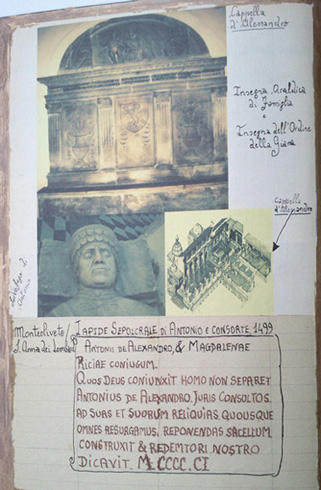 Cappella
d'Alessandro
Insegna Araldica
di Famiglia
e
Insegna dell'Ordine
della Giara
Cappella
d'Alessandro
Monteoliveto/
S. Anna dei Lombardi
Lapide Sepolcrale di Antonio e Consorte, 1499
Antonii de Alexandro, & Magdalenae
Riciae coniugum.
Quos Deus coniunxit homo non separet
Antonius de Alexandro. Juris Consultos.
ad suas et suorum reliquias quousque
omnes resurgamus, reponendas sacellum
construxit & Redemtori nostro
dicavit. M.CCCC.CI